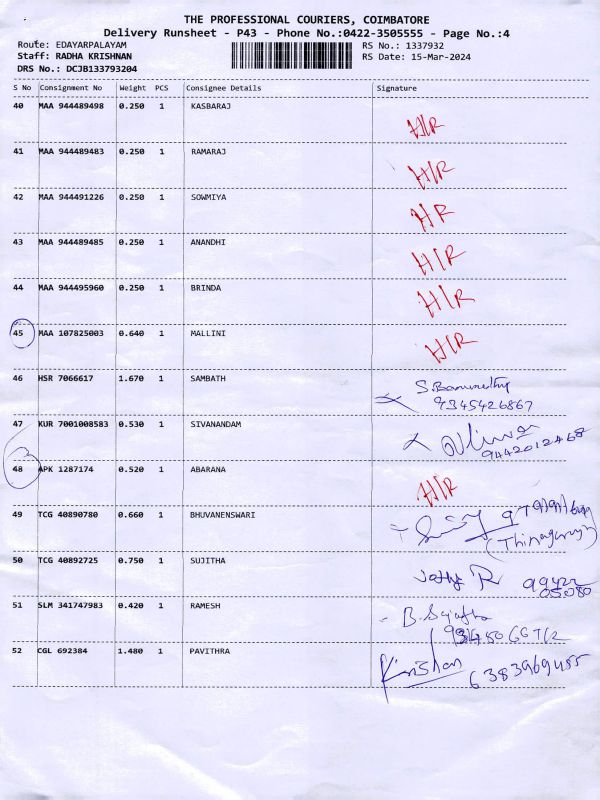 THE PROFESSIONAL COURIERS, COIMBATORE
Delivery Runsheet - P43 - Phone No.:0422-3505555 - Page No.:4
Route: EDAYARPALAYAM RS No.: 1337932
Staff: RADHA KRISHNAN RS Date: 15-Mar-2024
DRS No.: DCJB133793204
S No Consignment No Weight PCS Consignee Details Signature
40 MAA 944489498 0.250 1 KASBARAJ
H/R
41 MAA 944489483 0.250 1 RAMARAJ
H/R
42 MAA 944491226 0.250 1 SOWMIYA
H/R
43 MAA 944489485 0.250 1 ANANDHI
H/R
44 MAA 944495960 0.250 1 BRINDA
H/R
45 MAA 107825003 0.640 1 MALLINI
H/R
46 HSR 7066617 1.670 1 SAMBATH
9345426867
47 KUR 7001008583 0.530 1 SIVANANDAM
9442012468
48 APK 1287174 0.520 1 ABARANA
H/R
49 TCG 40890780 0.660 1 BHUVANENSWARI
50 TCG 40892725 0.750 1 SUJITHA
R 99422
05080
51 SLM 341747983 0.420 1 RAMESH
52 CGL 692384 1.480 1 PAVITHRA
Krishan 6383969455